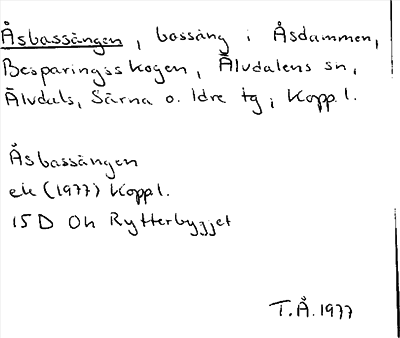 Åsbassängen, bassäng i Åsdammen,
Besparingsskogen, Älvdalens sn,
Älvdals, Särna o. Idre tg, Kopp. l.
Åsbassängen
ek (1977) Kopp l.
15 D 0h Rytterbygget
T.Å. 1977